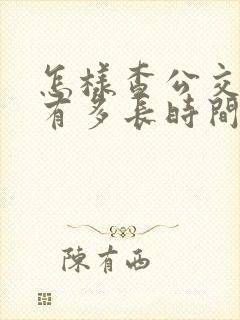 怎樣查公交
有多長時間
陳有西